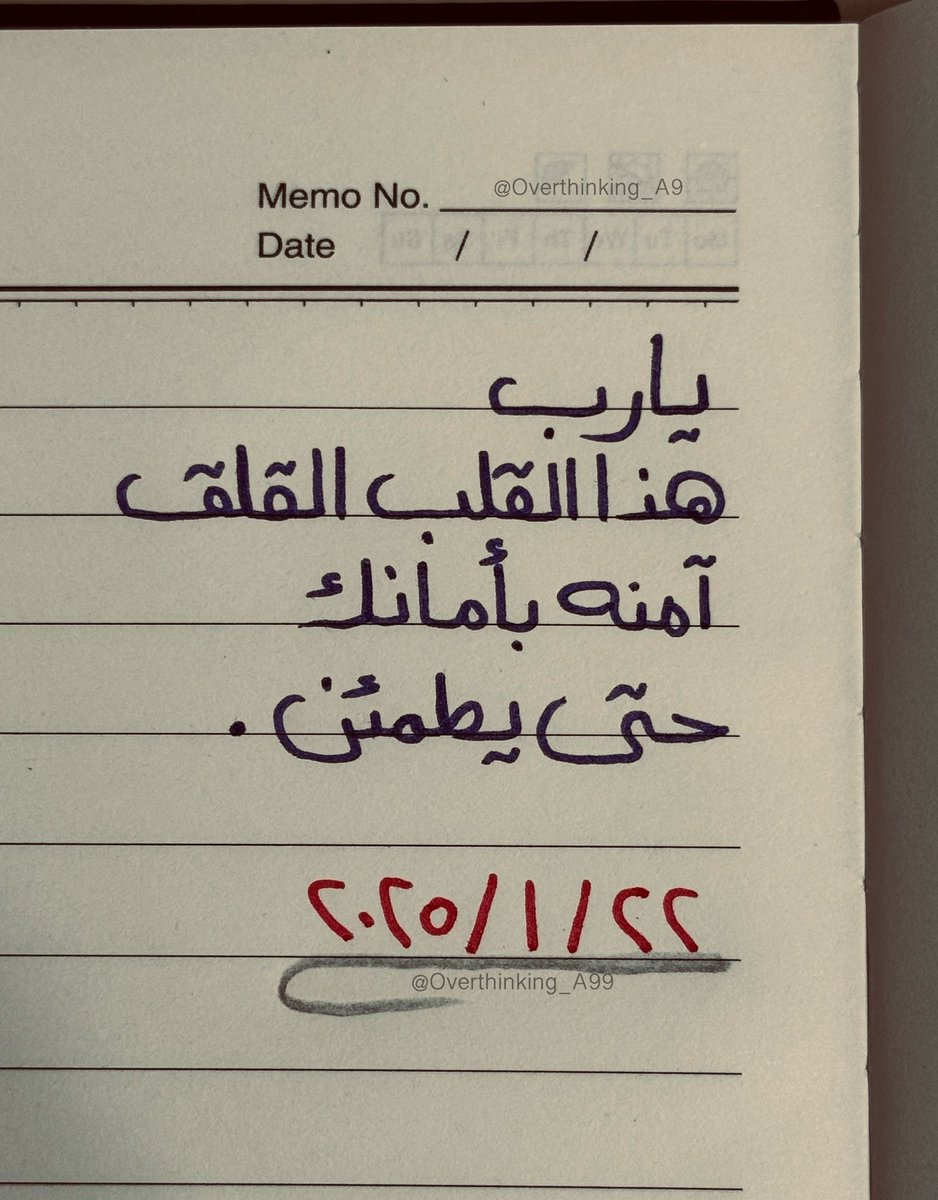 Memo No. @Overthinking_A9
Date / /
يارب
هذا القلب القلق
آمنه بأمانك
حتى يطمئن .
٢٢/١/٢٠٢٥
@Overthinking_A99